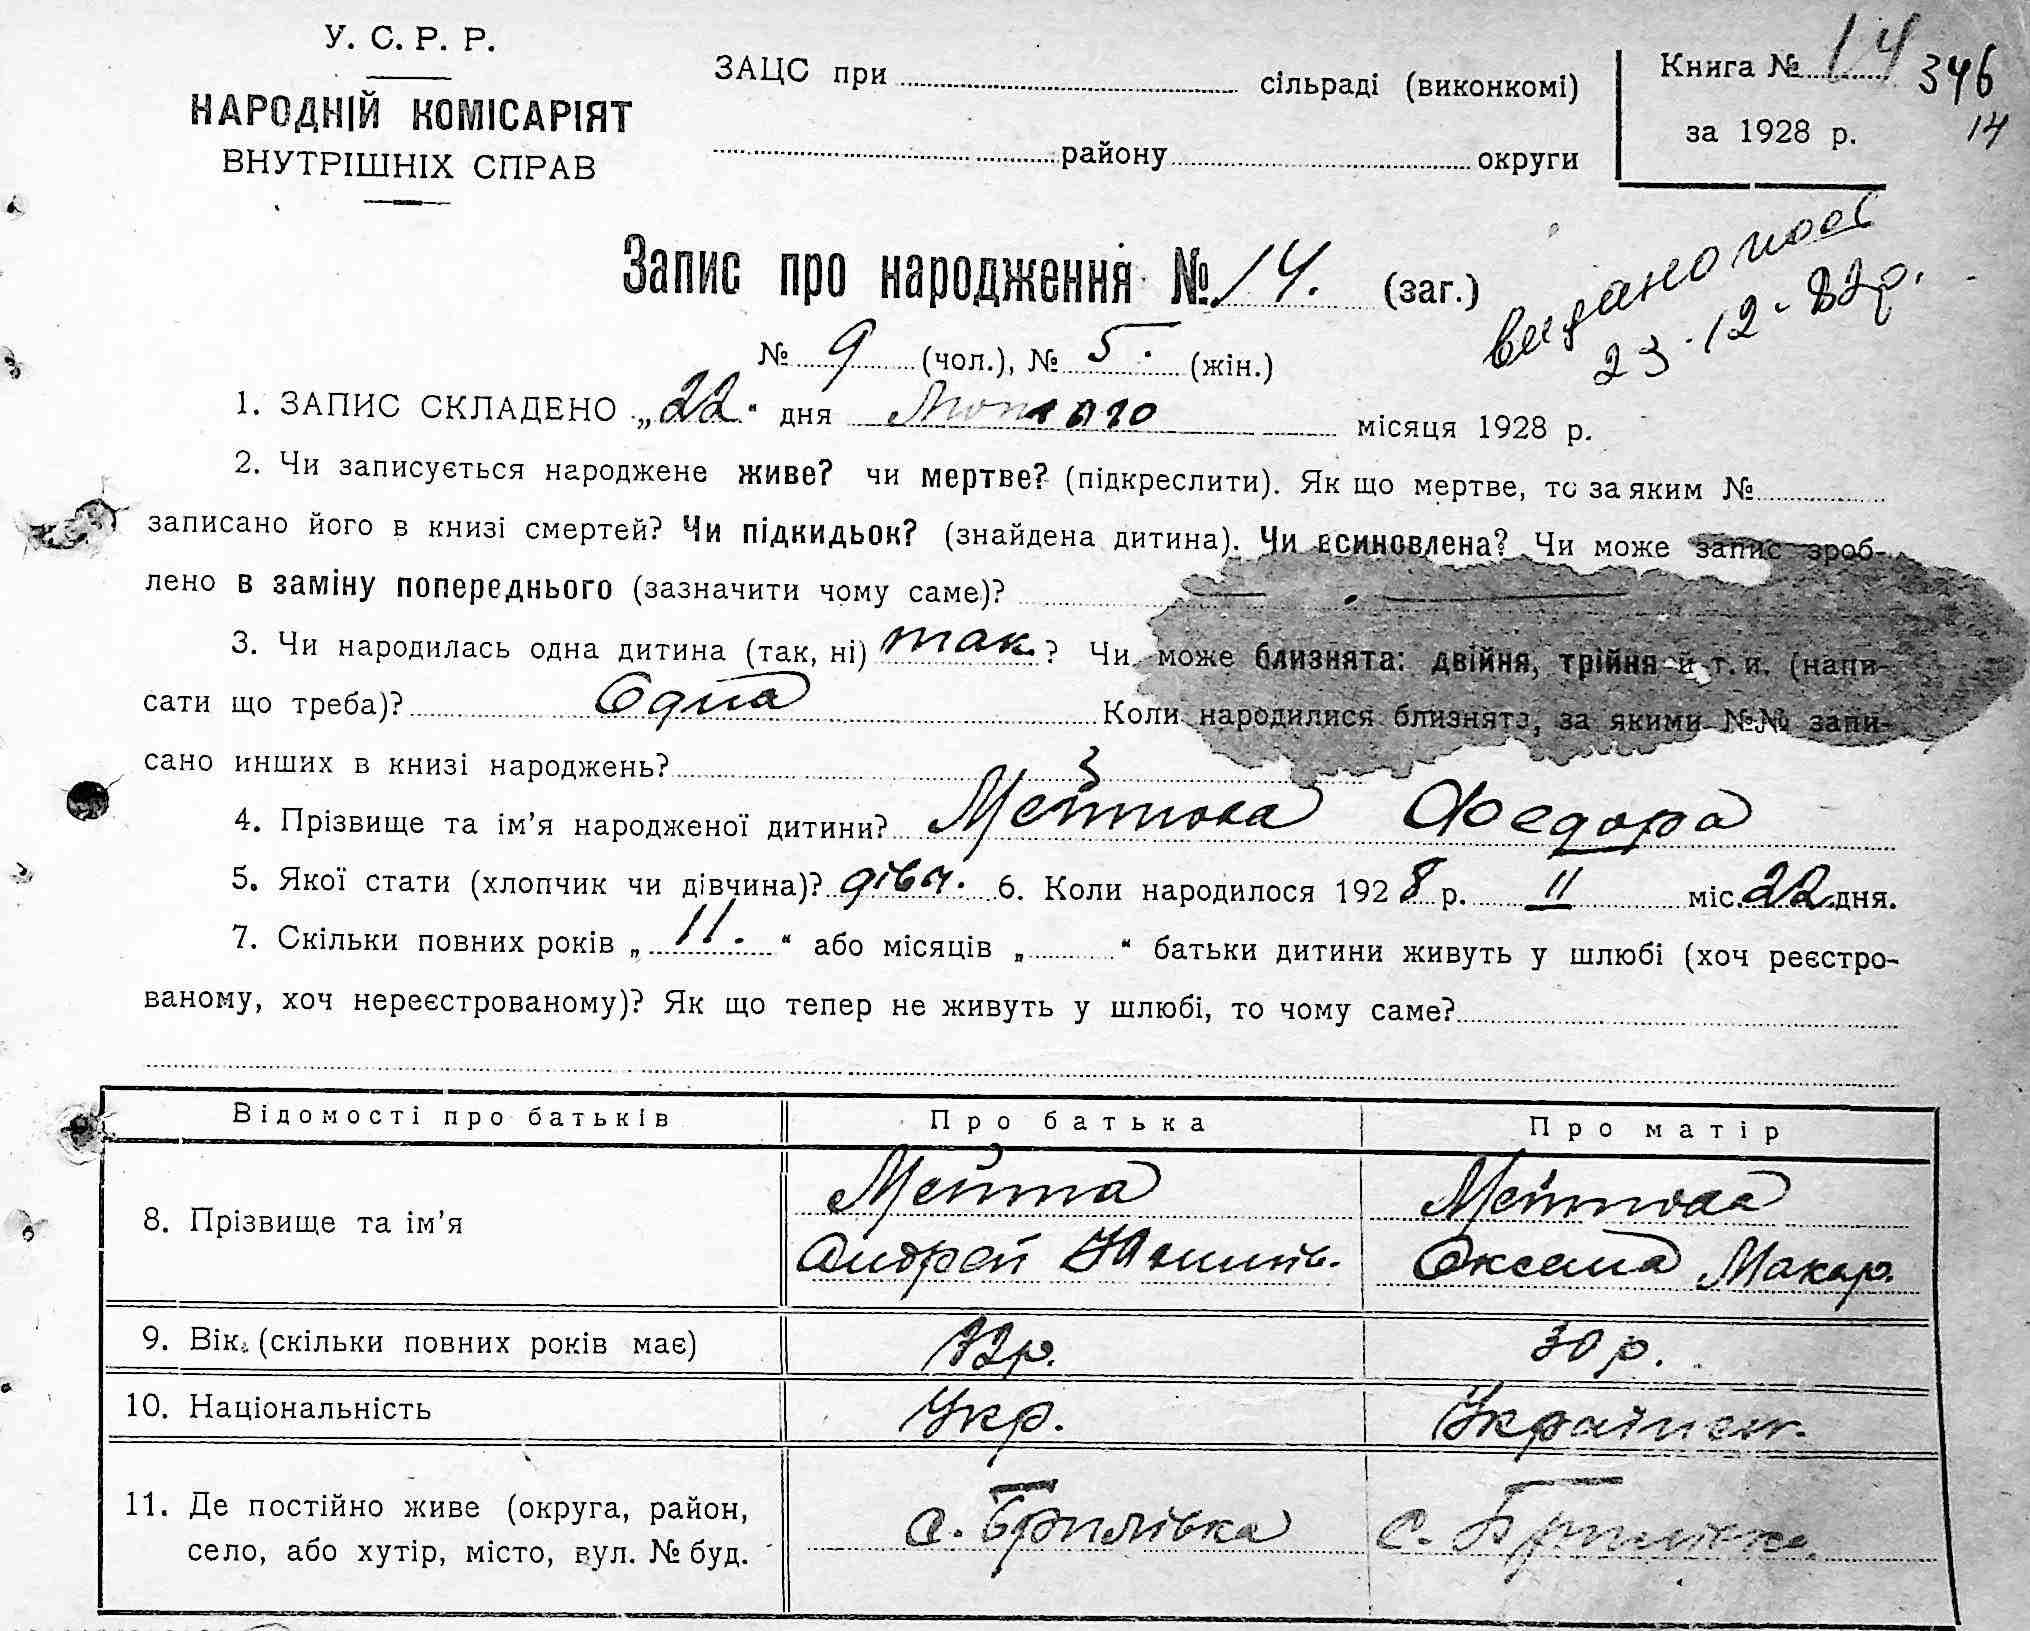 У. С. Р. Р.
НАРОДНІЙ КОМІСАРІЯТ
ВНУТРІШНІХ СПРАВ
ЗАЦС при сільраді (виконкомі)
району округи
Книга № 14 346
за 1928 р. 14
Запис про народження № 14. (заг.)
видано
23-12-82р.
№ 9 (чол.), № 5. (жін.)
1. ЗАПИС СКЛАДЕНО „22“ дня Лютого місяця 1928 р.
2. Чи записується народжене живе? чи мертве? (підкреслити). Як що мертве, то за яким №
записано його в книзі смертей? Чи підкидьок? (знайдена дитина). Чи всиновлена? Чи може запис зроб-
лено в заміну попереднього (зазначити чому саме)?
3. Чи народилась одна дитина (так, ні) так.? Чи може близнята: двійня, трійня й т. и. (напи-
сати що треба)? Одна Коли народилися близнята, за якими №№ запи-
сано инших в книзі народжень?
4. Прізвище та ім’я народженої дитини? Мейтова Федора
5. Якої стати (хлопчик чи дівчина)? дівч. 6. Коли народилося 1928 р. II міс. 22 дня.
7. Скільки повних років „11.“ або місяців „ “ батьки дитини живуть у шлюбі (хоч реєстро-
ваному, хоч нереєстрованому)? Як що тепер не живуть у шлюбі, то чому саме?
Відомості про батьків Про батька Про матір
8. Прізвище та ім’я Мейта Мейтова
Андрей Оксана Макар.
9. Вік (скільки повних років має) 32р. 30 р.
10. Національність Укр. Українк.
11. Де постійно живе (округа, район, с. Брилівка с. Брилівка
село, або хутір, місто, вул. № буд.